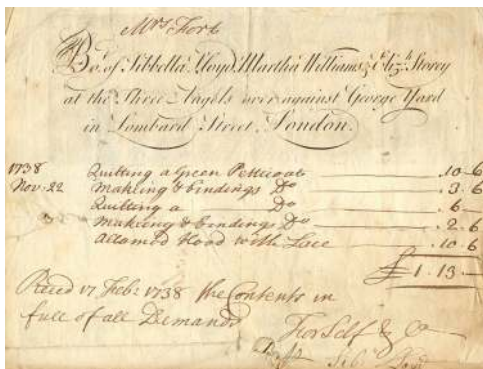 Mrs Fort
Bo.t of Sibbella Lloyd, Martha Williams, & Eliz.th Storey
at the Three Angels over against George Yard
in Lombard Street, London.
1738 Quilting a Green Petticoat .10-6
Nov. 22 Making & bindings Do .3.6
Quilting a Do .6-
Making & bindings Do .2.6
Hood with Lace .10 6
£1.13.-
Reced 17 Feb: 1738 the Contents in
full of all Demands
For Self & Co
Sib